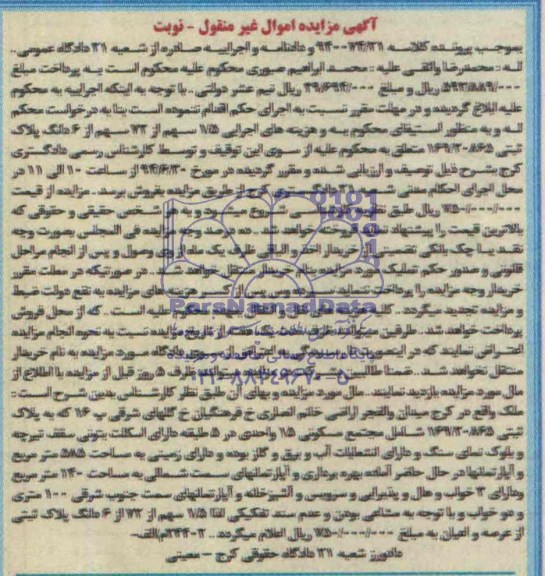 آگهی مزایده اموال غیر منقول - نوبت
بموجب پرونده کلاسه ۹۴۰۰۰۷۴/۳۱ و دادنامه و اجراییه صادره از شعبه ۳۱ دادگاه عمومی..
له : محمدرضا واثقی علیه : محمد ابراهیم صبوری محکوم علیه محکوم است به پرداخت مبلغ
ریال و مبلغ ۲۹/۶۹۴/۰۰۰ ریال نیم عشر دولتی.. با توجه به اینکه اجراییه به محکوم
علیه ابلاغ گردیده و در مهلت مقرر نسبت به اجرای حکم اقدام ننموده است بنا به درخواست محکم
له و به منظور استیفای محکوم به و هزینه های اجرایی ۱/۵ سهم از ۷۲ سهم از ۶ دانگ پلاک
ثبتی ۱۶۹/۳۰۸۶۵ متعلق به محکوم علیه از سوی این توقیف و توسط کارشناس رسمی دادگستری
کرج بشرح ذیل توصیف و ارزیابی شده و مقرر گردیده در مورخ ۹۴/۶/۳۰ از ساعت ۱۰ الی ۱۱ در
محل اجرای احکام مدنی شعبه ۳۱ دادگستری کرج از طریق مزایده بفروش برسد.. مزایده از قیمت
ریال طبق نظر کارشناسی شروع میشود و به هر شخص حقیقی و حقوقی که
بالاترین قیمت را پیشنهاد نماید فروخته خواهد شد.. ده درصد وجه مزایده فی المجلس بصورت وجه
نقد یا چک بانکی تضمینی از خریدار اخذ و الباقی ظرف یک ماه از وی وصول و پس از انجام مراحل
قانونی و صدور حکم تملیک مورد مزایده بنام خریدار منتقل خواهد شد.. در صورتیکه در مهلت مقرر
خریدار وجه مزایده را پرداخت ننماید سپرده وی پس از کسر هزینه های مزایده به نفع دولت ضبط
و مزایده تجدید میگردد.. کلیه هزینه های نقل و انتقال بعهده محکوم علیه است.. که از محل فروش
پرداخت خواهد شد.. طرفین میتوانند ظرف مدت یک هفته از تاریخ مزایده نسبت به نحوه انجام مزایده
اعتراض نمایند که در اینصورت تا رسیدگی به اعتراض از سوی دادگاه مورد مزایده به نام خریدار
منتقل نخواهد شد.. ضمنا طالبین شرکت در مزایده میتوانند ظرف ۵ روز قبل از مزایده با اطلاع از
مال مورد مزایده بازدید نمایند.. مال مورد مزایده و بهای آن طبق نظر کارشناسی بدین شرح است :
ملک واقع در کرج میدان والفجر اراضی خانم انصاری خ فرهنگیان خ گلهای شرقی پ ۱۶ که به پلاک
ثبتی ۱۶۹/۳۰۸۶۵ شامل مجتمع مسکونی ۱۵ واحدی در ۵ طبقه دارای اسکلت بتونی سقف تیرچه
و بلوک نمای سنگ و دارای انشعابات آب و برق و گاز بوده و دارای زمینی به مساحت ۵۸۵ متر مربع
و آپارتمانها در حال حاضر آماده بهره برداری و آپارتمانهای سمت شمالی به مساحت ۱۴۰ متر مربع
ودارای ۳ خواب و هال و پذیرایی و سرویس و آشپزخانه و آپارتمانهای سمت جنوب شرقی ۱۰۰ متری
و دو خواب و با توجه به مشاعی بودن و عدم سند تفکیکی لذا ۱/۵ سهم از ۷۲ از ۶ دانگ پلاک ثبتی
از عرصه و اعیان به مبلغ ۷۵۰/۰۰۰/۰۰۰ ریال اعلام میگردد..
دادورز شعبه ۳۱ دادگاه حقوقی کرج - معینی
ParsNamadData
۰۲۱-۸۸۳۴۹۶۷۰-۵